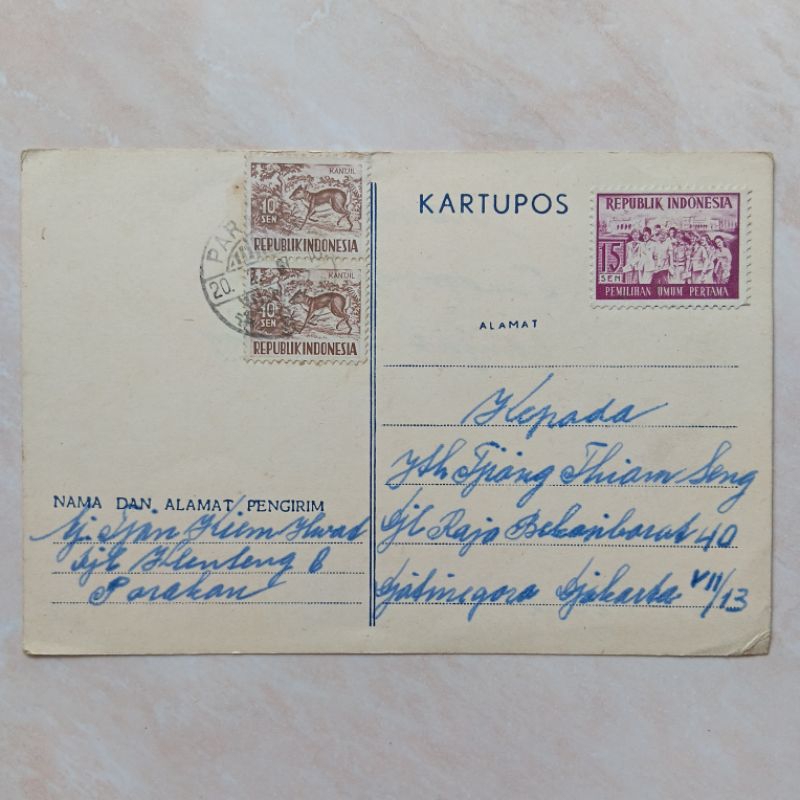 KANTJIL
10
SEN
REPUBLIK INDONESIA
KANTJIL
10
SEN
REPUBLIK INDONESIA
PAR
20.
KARTUPOS
REPUBLIK INDONESIA
15
SEN
PEMILIHAN UMUM PERTAMA
ALAMAT
Kepada
Yth Tjiong Thiam Seng
Djl Raja Bekasibarat 40
Djatinegara Djakarta VIII/13
NAMA DAN ALAMAT PENGIRIM
Nj. Tjan Kiem Hwat
Djl Klenteng 6
Parakan